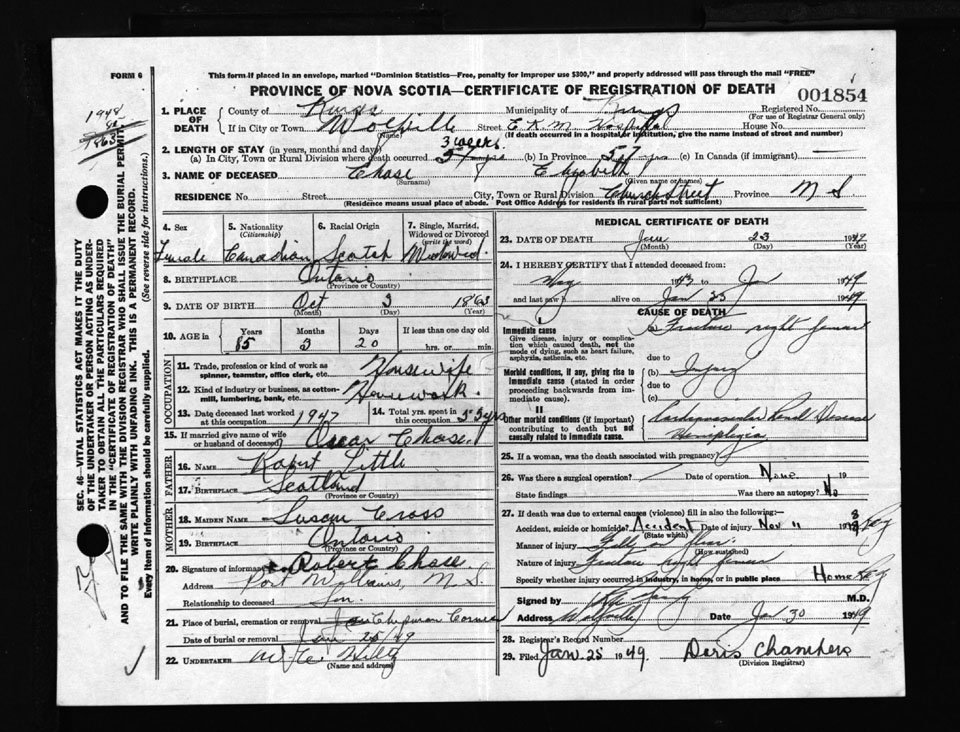 FORM 6
This form if placed in an envelope, marked "Dominion Statistics—Free, penalty for improper use $300," and properly addressed will pass through the mail "FREE"
PROVINCE OF NOVA SCOTIA—CERTIFICATE OF REGISTRATION OF DEATH
001854
1. PLACE OF DEATH
County of Kings Municipality of Kings Registered No.
(For use of Registrar General only)
If in City or Town Wolfville Street E K M Hospital House No.
(Name) (If death occurred in a hospital or institution, give the name instead of street and number)
2. LENGTH OF STAY (in years, months and days) 3 weeks.
(a) In City, Town or Rural Division where death occurred 57 yrs (b) In Province 57 yrs (c) In Canada (if immigrant)
3. NAME OF DECEASED Chase Elizabeth
(Surname) (Given name or names)
RESIDENCE No. Street City, Town or Rural Division Church Street Province N S
(Residence means usual place of abode. Post Office Address for residents in rural parts not sufficient)
4. Sex 5. Nationality (Citizenship) 6. Racial Origin 7. Single, Married, Widowed or Divorced (write the word)
Female Canadian Scotch Widowed.
8. BIRTHPLACE Ontario
(Province or Country)
9. DATE OF BIRTH Oct 3 1863
(Month) (Day) (Year)
10. AGE in Years Months Days If less than one day old
85 3 20 hrs. or min.
OCCUPATION
11. Trade, profession or kind of work as spinner, teamster, office clerk, etc. Housewife
12. Kind of industry or business, as cotton-mill, lumbering, bank, etc. Housework
13. Date deceased last worked at this occupation 1947 14. Total yrs. spent in this occupation 55 yrs
15. If married give name of wife or husband of deceased Oscar Chase.
FATHER
16. NAME Robert Little
17. BIRTHPLACE Scotland
(Province or Country)
MOTHER
18. MAIDEN NAME Susan Cross
19. BIRTHPLACE Ontario
(Province or Country)
20. Signature of informant Robert Chase
Address Port Williams, N.S.
Relationship to deceased Son.
21. Place of burial, cremation or removal Chipman Corner
Date of burial or removal Jan 25/49
22. UNDERTAKER Hiltz
(Name and address)
MEDICAL CERTIFICATE OF DEATH
23. DATE OF DEATH Jan 23 1949
(Month) (Day) (Year)
24. I HEREBY CERTIFY that I attended deceased from:
May 1943 to Jan 1949
and last saw h alive on Jan 23 1949
CAUSE OF DEATH
I
Immediate cause (a) Fracture right femur
Give disease, injury or complication which caused death, not the mode of dying, such as heart failure, asphyxia, asthenia, etc. due to
Morbid conditions, if any, giving rise to immediate cause (stated in order proceeding backwards from immediate cause). (b) Injury
due to
(c)
II
Other morbid conditions (if important) contributing to death but not causally related to immediate cause. Cardiovascular Renal Disease
Hemiplegia
25. If a woman, was the death associated with pregnancy?
26. Was there a surgical operation? Date of operation None 19
State findings Was there an autopsy? No
27. If death was due to external causes (violence) fill in also the following:—
Accident, suicide or homicide? Accident Date of injury Nov 11 1948
(State which)
Manner of injury Fell on floor
(How sustained)
Nature of injury Fracture right femur
Specify whether injury occurred in industry, in home, or in public place Home
Signed by M.D.
Address Wolfville Date Jan 30 1949
28. Registrar's Record Number
29. Filed Jan. 25 1949. Doris Chambers
(Division Registrar)
SEC. 46—VITAL STATISTICS ACT MAKES IT THE DUTY
OF THE UNDERTAKER OR PERSON ACTING AS UNDER-
TAKER TO OBTAIN ALL THE PARTICULARS REQUIRED
IN THE "CERTIFICATE OF REGISTRATION OF DEATH"
AND TO FILE THE SAME WITH THE DIVISION REGISTRAR WHO SHALL ISSUE THE BURIAL PERMIT
WRITE PLAINLY WITH UNFADING INK. THIS IS A PERMANENT RECORD.
Every item of information should be carefully supplied. (See reverse side for instructions.)
1948
85
1863